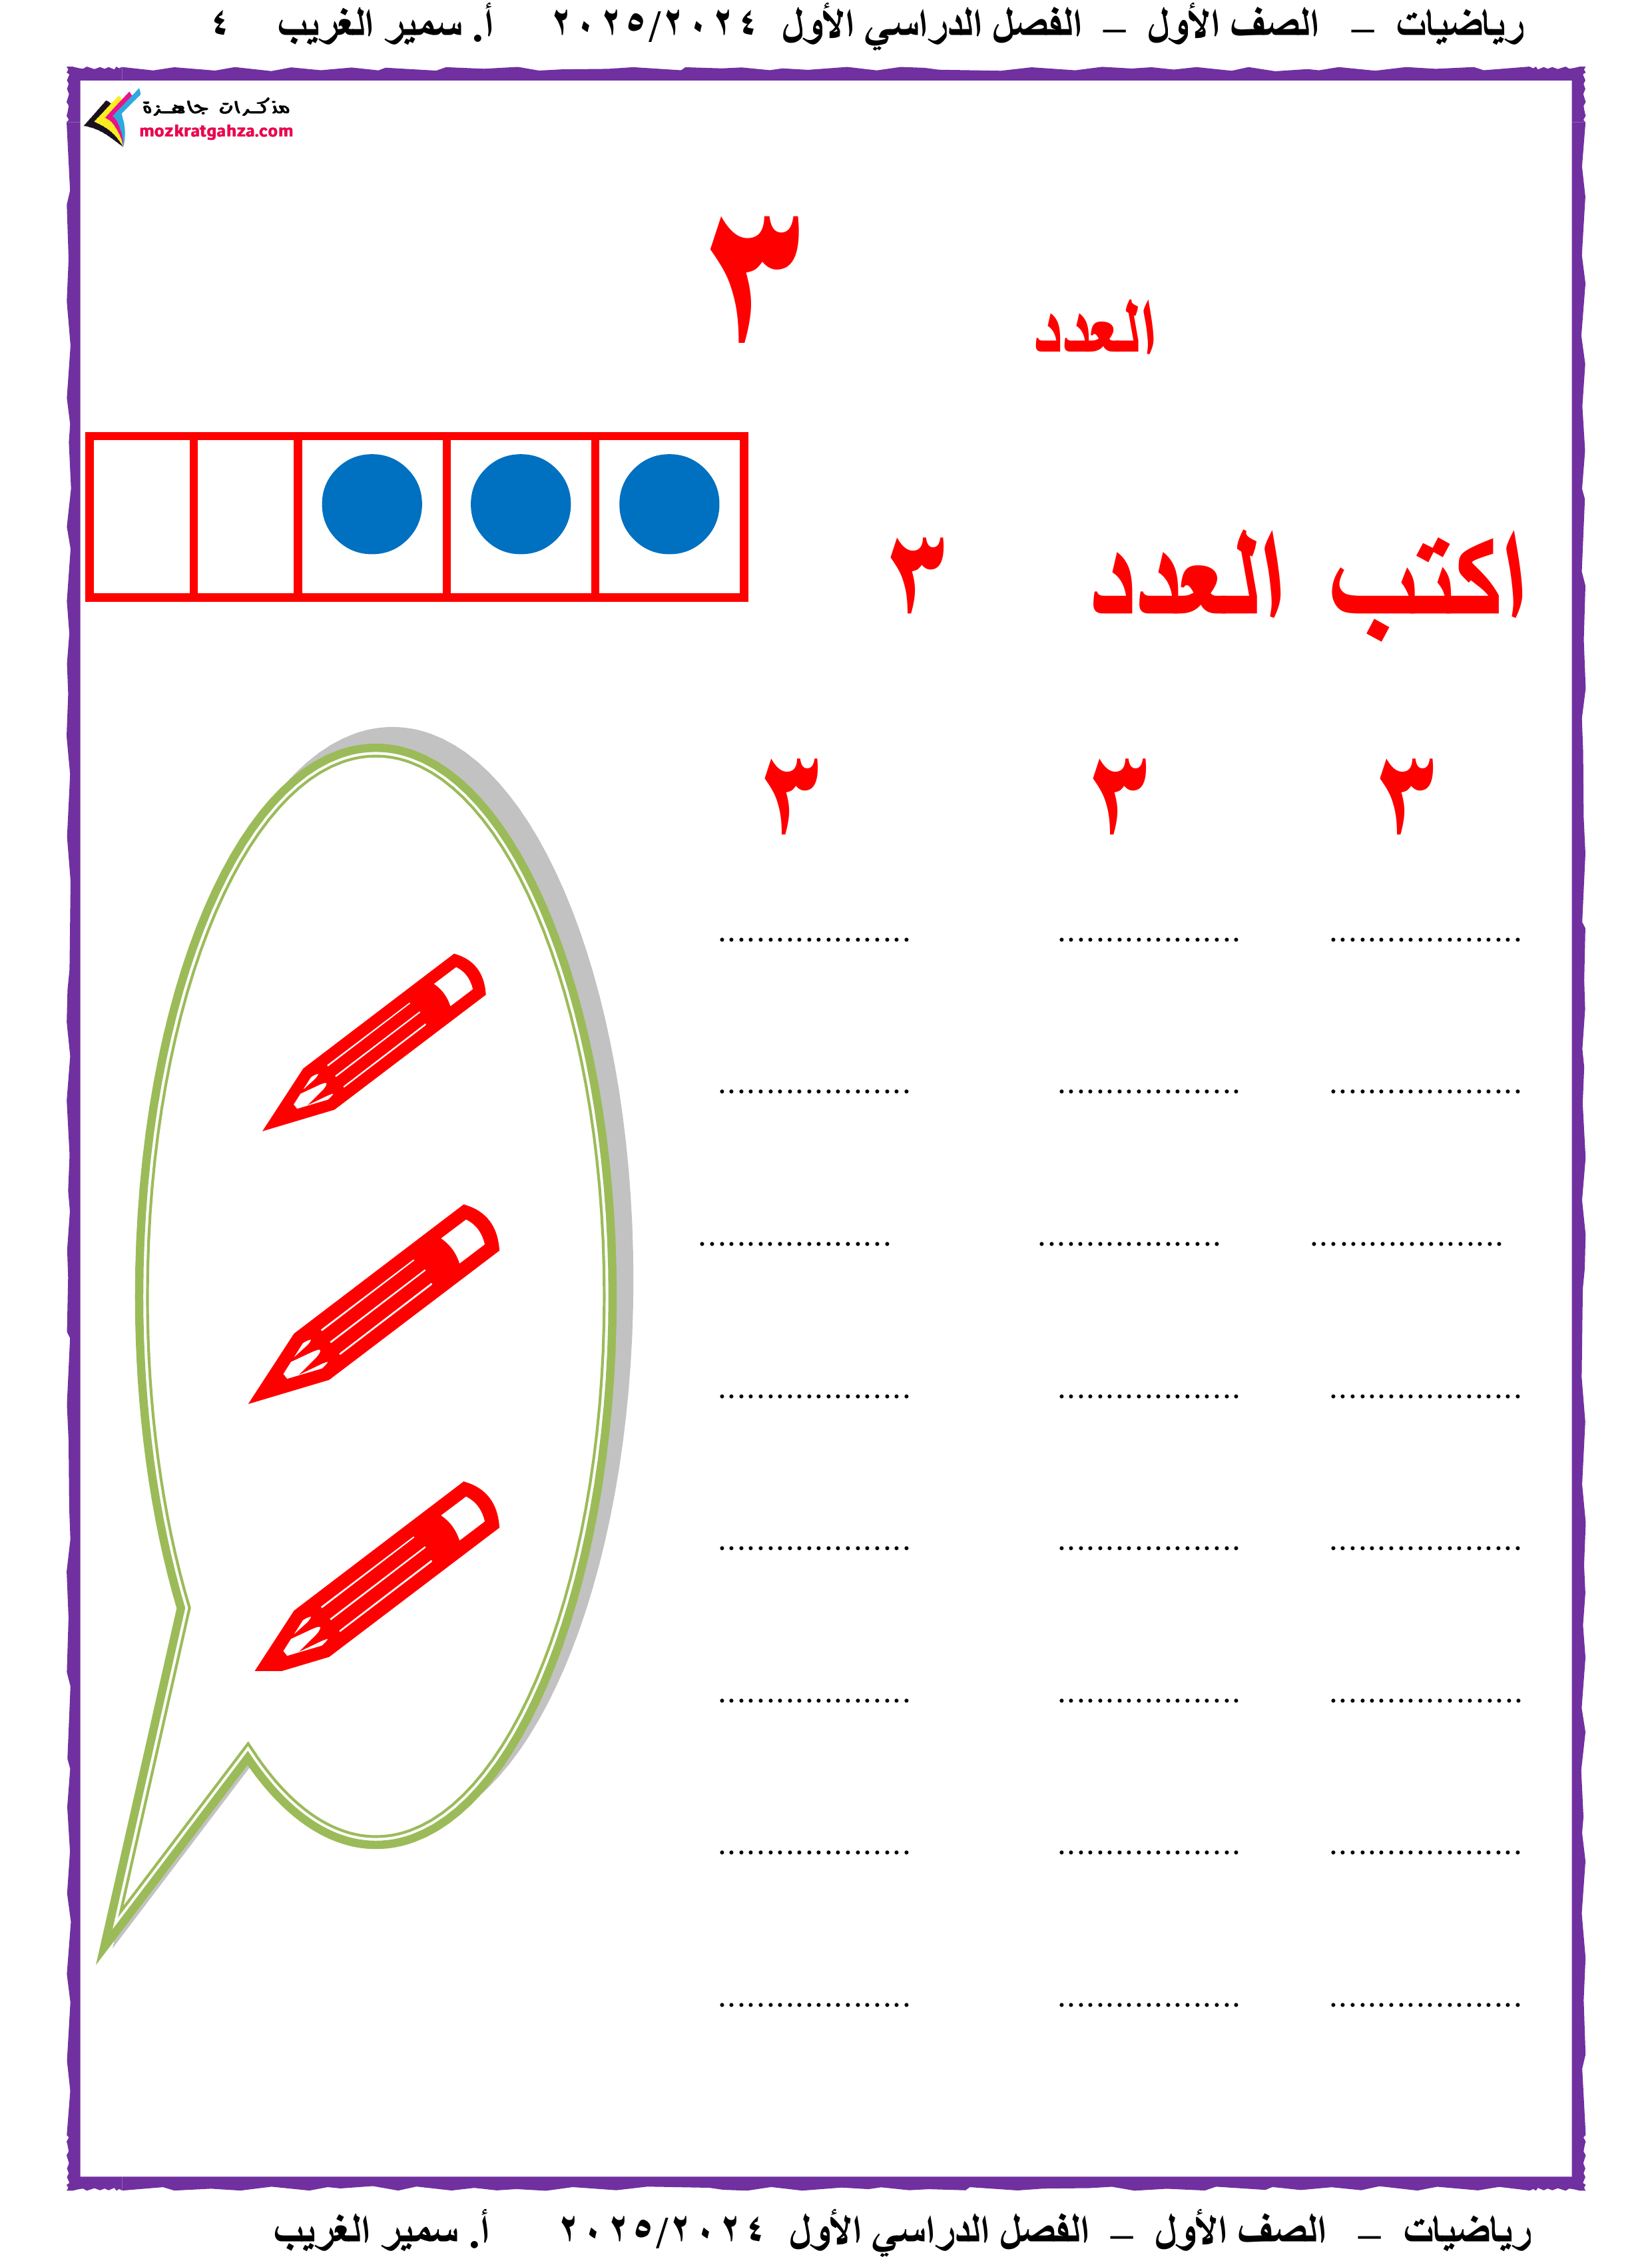 رياضيات – الصف الأول – الفصل الدراسي الأول ٢٠٢٥/٢٠٢٤ أ. سمير الغريب ٤
مذكرات جاهزة
mozkratgahza.com
العدد ٣
اكتب العدد ٣
٣ ٣ ٣
................... .................. ...................
................... .................. ...................
................... .................. ...................
................... .................. ...................
................... .................. ...................
................... .................. ...................
................... .................. ...................
................... .................. ...................
رياضيات – الصف الأول – الفصل الدراسي الأول ٢٠٢٥/٢٠٢٤ أ. سمير الغريب